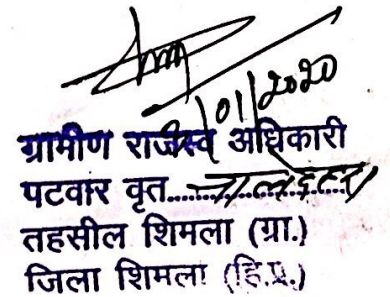 /01/2020
ग्रामीण राजस्व अधिकारी
पटवार वृत..................
तहसील शिमला (ग्रा.)
जिला शिमला (हि.प्र.)